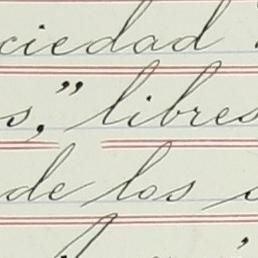 ciedad
s," libres
de los